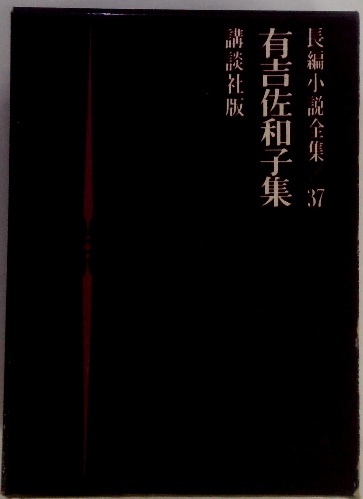 長編小説全集／37
有吉佐和子集
講談社版